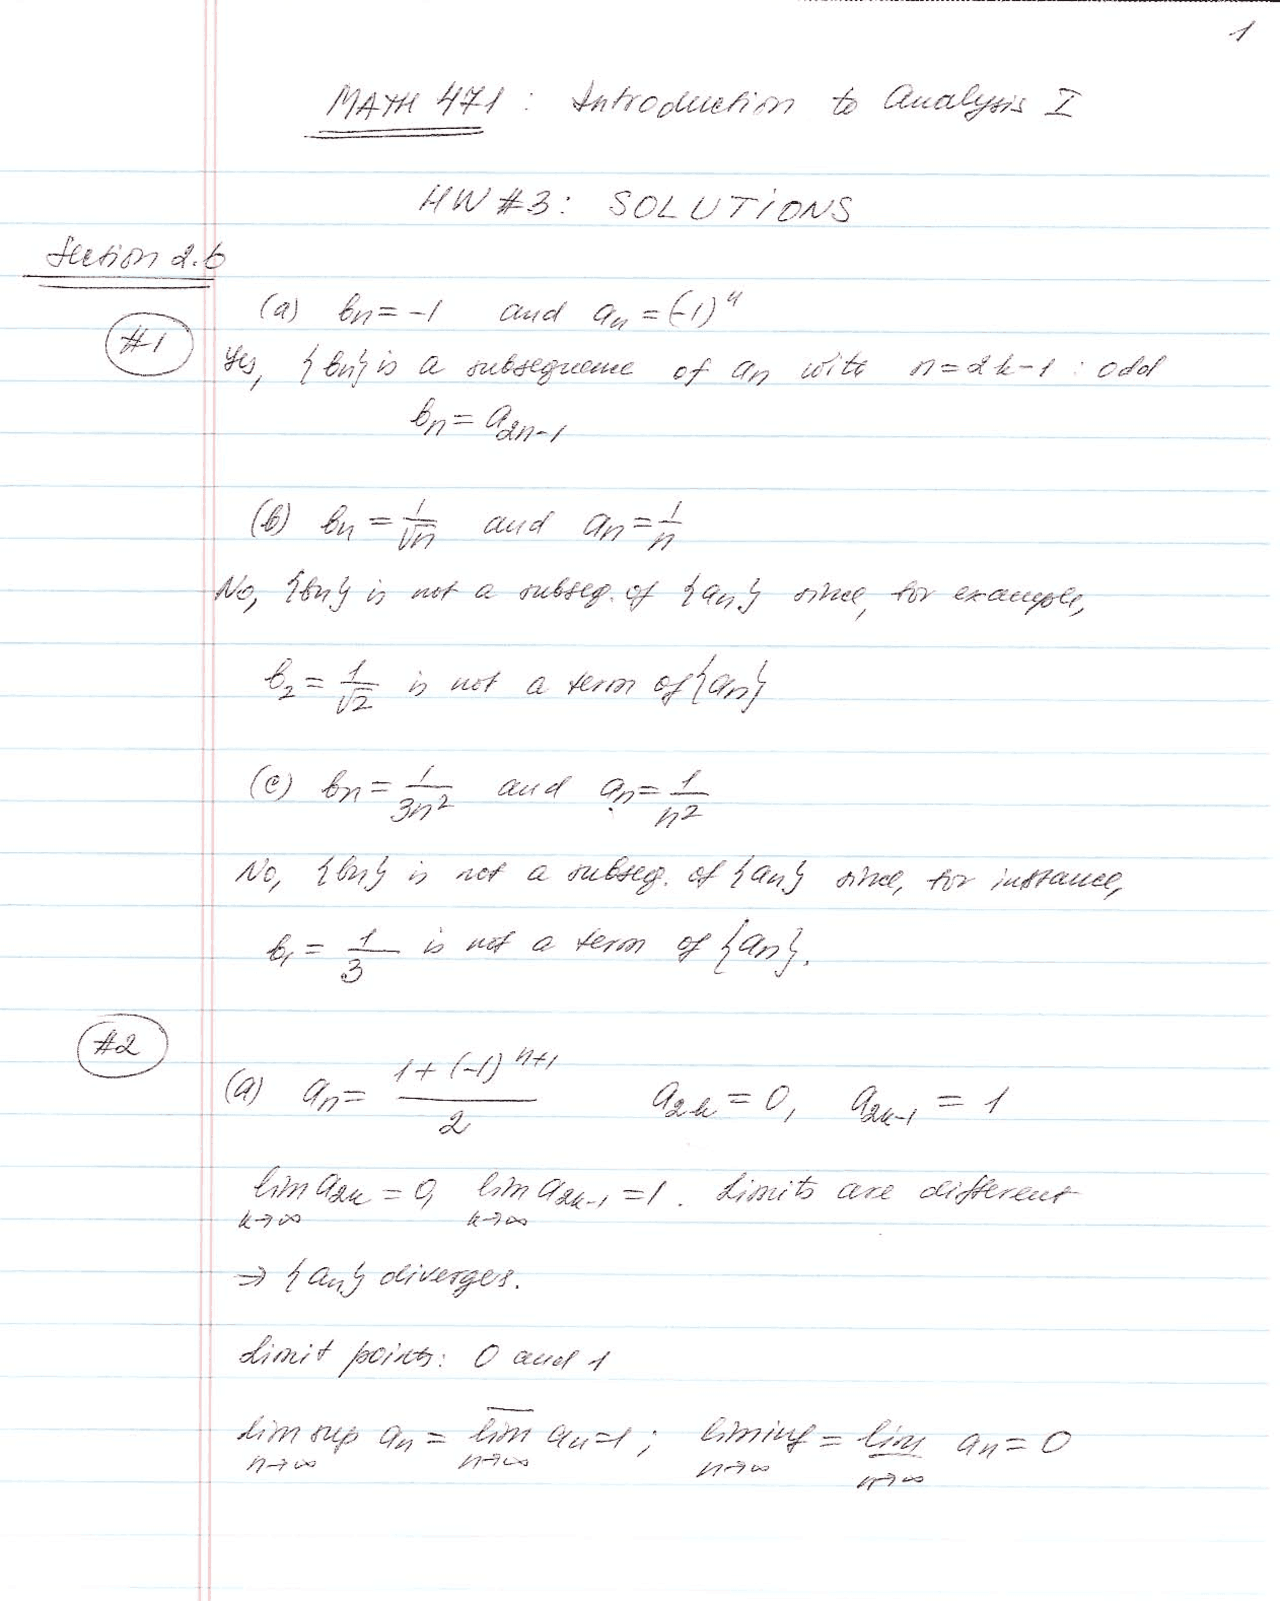 1
MATH 471: Introduction to Analysis I
HW #3: SOLUTIONS
Section 2.6
#1
(a) bn = -1 and an = (-1)^n
Yes, {bn} is a subsequence of an with n = 2k-1 : odd
bn = a2n-1
(b) bn = 1/√n and an = 1/n
No, {bn} is not a subseq. of {an} since, for example,
b2 = 1/√2 is not a term of {an}
(c) bn = 1/3n² and an = 1/n²
No, {bn} is not a subseq. of {an} since, for instance,
b1 = 1/3 is not a term of {an}.
#2
(a) an = (1+(-1)^n+1)/2 a2k = 0, a2k-1 = 1
lim k→∞ a2k = 0, lim k→∞ a2k-1 = 1. Limits are different
⇒ {an} diverges.
Limit points: 0 and 1
lim sup n→∞ an = l̅i̅m̅ n→∞ an = 1; liminf n→∞ = l̲i̲m̲ n→∞ an = 0